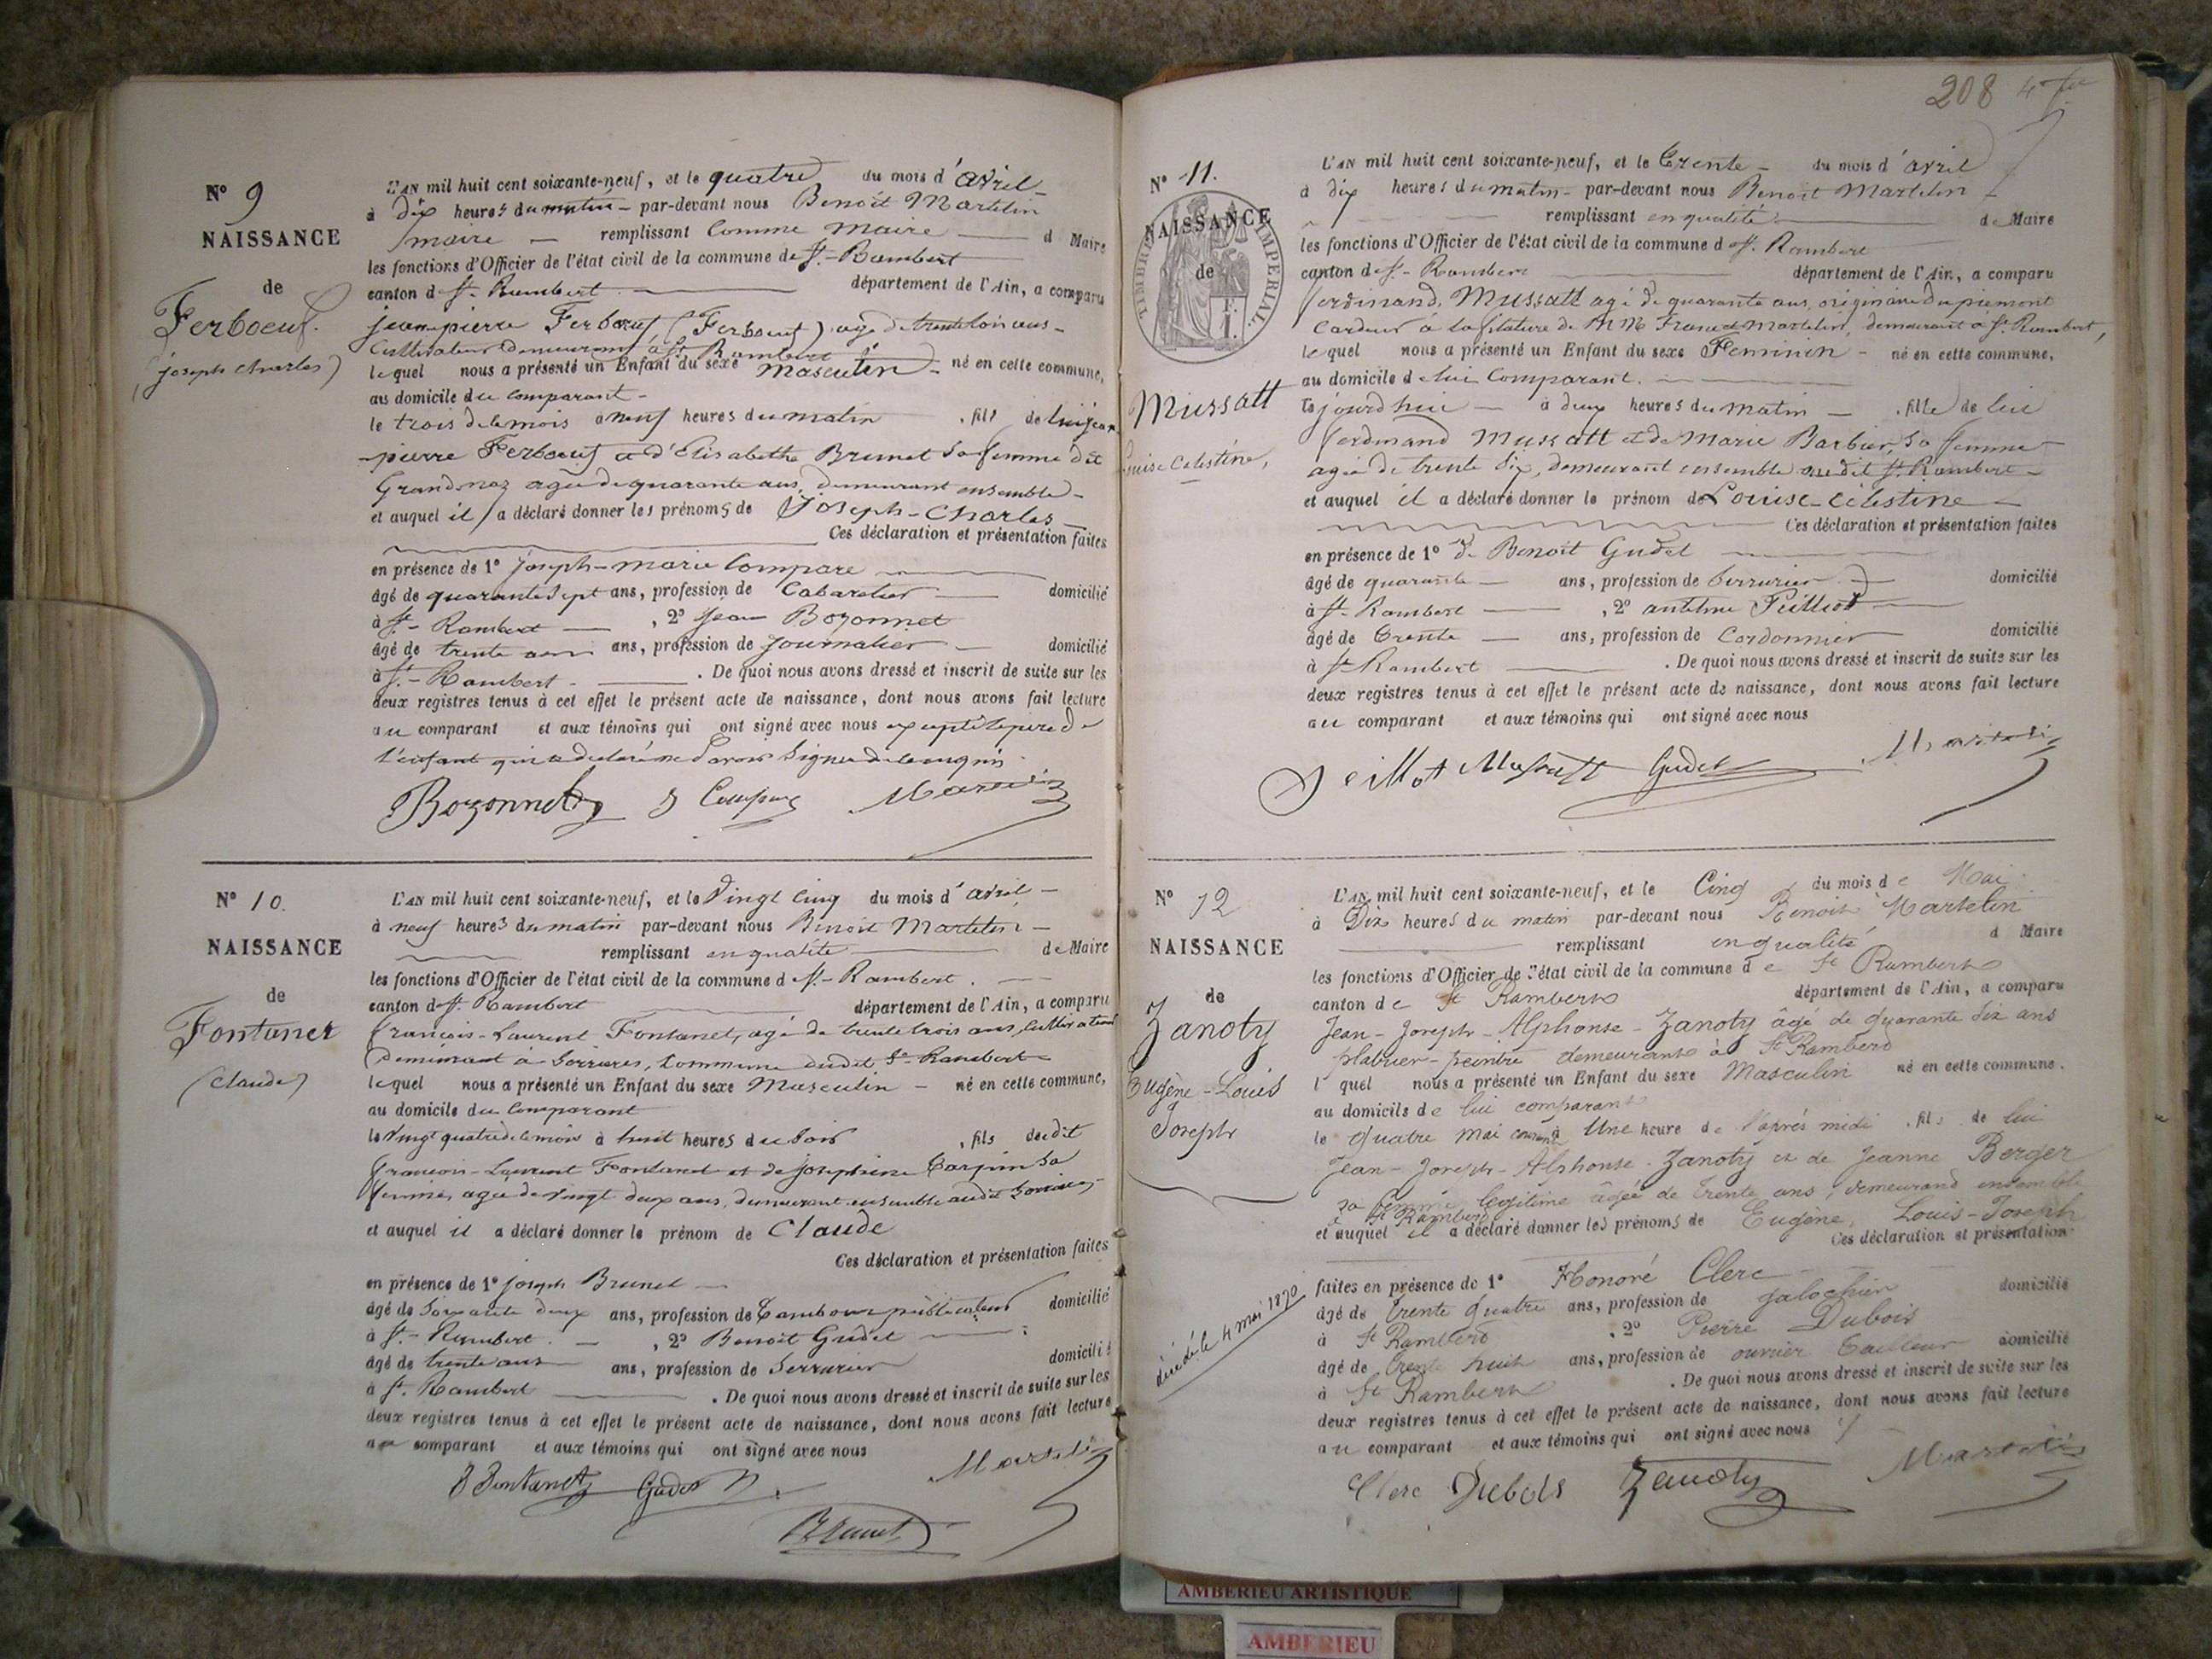 N° 9
NAISSANCE
de
Ferboeuf.
(joseph charles)
L'AN mil huit cent soixante-neuf, et le quatre du mois d'avril
à dix heures du matin par-devant nous Benoît Martelin
maire remplissant comme maire d Maire
les fonctions d'Officier de l'état civil de la commune de St-Rambert
canton d St. Rambert département de l'Ain, a comparu
jean pierre Ferboeuf (Ferboeuf) agé de trente ans
Cultivateur demeurant à St Rambert
lequel nous a présenté un Enfant du sexe masculin né en cette commune,
au domicile du comparant
le trois de ce mois à neuf heures du matin, fils de lui jean
pierre Ferboeuf et d'Elisabethe Brunet sa femme dit
Grandnoz agée de quarante ans, demeurant ensemble
et auquel il a déclaré donner les prénoms de Joseph-Charles
Ces déclaration et présentation faites
en présence de 1° joseph-marie Compare
âgé de quarante sept ans, profession de Cabaretier domicilié
à St-Rambert, 2° Jean Bozonnet
âgé de trente ans, profession de journalier domicilié
à St-Rambert. De quoi nous avons dressé et inscrit de suite sur les
deux registres tenus à cet effet le présent acte de naissance, dont nous avons fait lecture
au comparant et aux témoins qui ont signé avec nous excepté le père de
l'enfant qui a déclaré ne savoir signer de ce requis.
Bozonnet J Compare Martelin
N° 10.
NAISSANCE
de
Fontanet
(claude)
L'AN mil huit cent soixante-neuf, et le Vingt cinq du mois d'avril
à neuf heures du matin par-devant nous Benoît Martelin
remplissant en qualité de Maire
les fonctions d'Officier de l'état civil de la commune d St-Rambert.
canton d St. Rambert département de l'Ain, a comparu
françois-Laurent Fontanet, agé de trente trois ans, cultivateur
demeurant à Serrières, commune dudit St-Rambert
lequel nous a présenté un Enfant du sexe Masculin né en cette commune,
au domicile du Comparant
le Vingt quatre de ce mois à huit heures du soir, fils dudit
francois-Laurent Fontanet et de josephine Carjin sa
femme, agée de vingt deux ans, demeurant ensemble audit
et auquel il a déclaré donner le prénom de Claude
Ces déclaration et présentation faites
en présence de 1° joseph Brunet
âgé de soixante deux ans, profession de Tambour publicateur domicilié
à St-Rambert., 2° Benoit Gudet
âgé de trente ans ans, profession de Serrurier domicilié
à St. Rambert. De quoi nous avons dressé et inscrit de suite sur les
deux registres tenus à cet effet le présent acte de naissance, dont nous avons fait lecture
au comparant et aux témoins qui ont signé avec nous
Fontanet Gudet Martelin
Brunet
208
N° 11.
NAISSANCE
de
TIMBRE IMPÉRIAL
Mussatt
Louise Celestine,
L'AN mil huit cent soixante-neuf, et le Trente du mois d'avril
à dix heures du matin par-devant nous Benoît Martelin
remplissant en qualité de Maire
les fonctions d'Officier de l'état civil de la commune d St. Rambert
canton d St-Rambert département de l'Ain, a comparu
ferdinand, Mussatt agé de quarante ans, originaire du piemont
Cardeur à la filature de MM Franc et Martelin, demeurant à St. Rambert,
lequel nous a présenté un Enfant du sexe Feminin né en cette commune,
au domicile de lui Comparant.
ce jourd'hui à deux heures du matin, fille de lui
ferdinand Mussatt et de Marie Barbier, sa femme
agée de trente six, demeurant ensemble audit St. Rambert
et auquel il a déclaré donner le prénom de Louise-célestine
Ces déclaration et présentation faites
en présence de 1° Benoît Gudet
âgé de quarante ans, profession de Serrurier domicilié
à St-Rambert, 2° antelme
âgé de Trente ans, profession de Cordonnier domicilié
à St Rambert. De quoi nous avons dressé et inscrit de suite sur les
deux registres tenus à cet effet le présent acte de naissance, dont nous avons fait lecture
au comparant et aux témoins qui ont signé avec nous
Mussatt Gudet Martelin
N° 12
NAISSANCE
de
Zanoty
Eugène-Louis
Joseph
décédé le 4 mai 1870
L'AN mil huit cent soixante-neuf, et le Cinq du mois de Mai
à Dix heures du matin par-devant nous Benoit Martelin
remplissant en qualité d Maire
les fonctions d'Officier de l'état civil de la commune de St Rambert
canton de St Rambert département de l'Ain, a comparu
Jean-Joseph-Alphonse-Zanoty âgé de quarante dix ans
platrier-peintre demeurant à St Rambert
l quel nous a présenté un Enfant du sexe Masculin né en cette commune.
au domicile de lui comparant
le quatre mai courant à Une heure de l'après midi, fils de lui
Jean-Joseph-Alphonse-Zanoty et de Jeanne Berger
sa femme legitime âgée de Trente ans, demeurand ensemble
à St Rambert
et auquel il a déclaré donner les prénoms de Eugène, Louis-Joseph
Ces déclaration et présentation
faites en présence de 1° Honoré Clerc
âgé de trente quatre ans, profession de galochier domicilié
à St Rambert. 2° Pierre Dubois
âgé de trente huit ans, profession de ouvrier tailleur domicilié
à St Rambert. De quoi nous avons dressé et inscrit de suite sur les
deux registres tenus à cet effet le présent acte de naissance, dont nous avons fait lecture
au comparant et aux témoins qui ont signé avec nous
Clerc Dubois Zanoty Martelin
AMBERIEU ARTISTIQUE
AMBERIEU